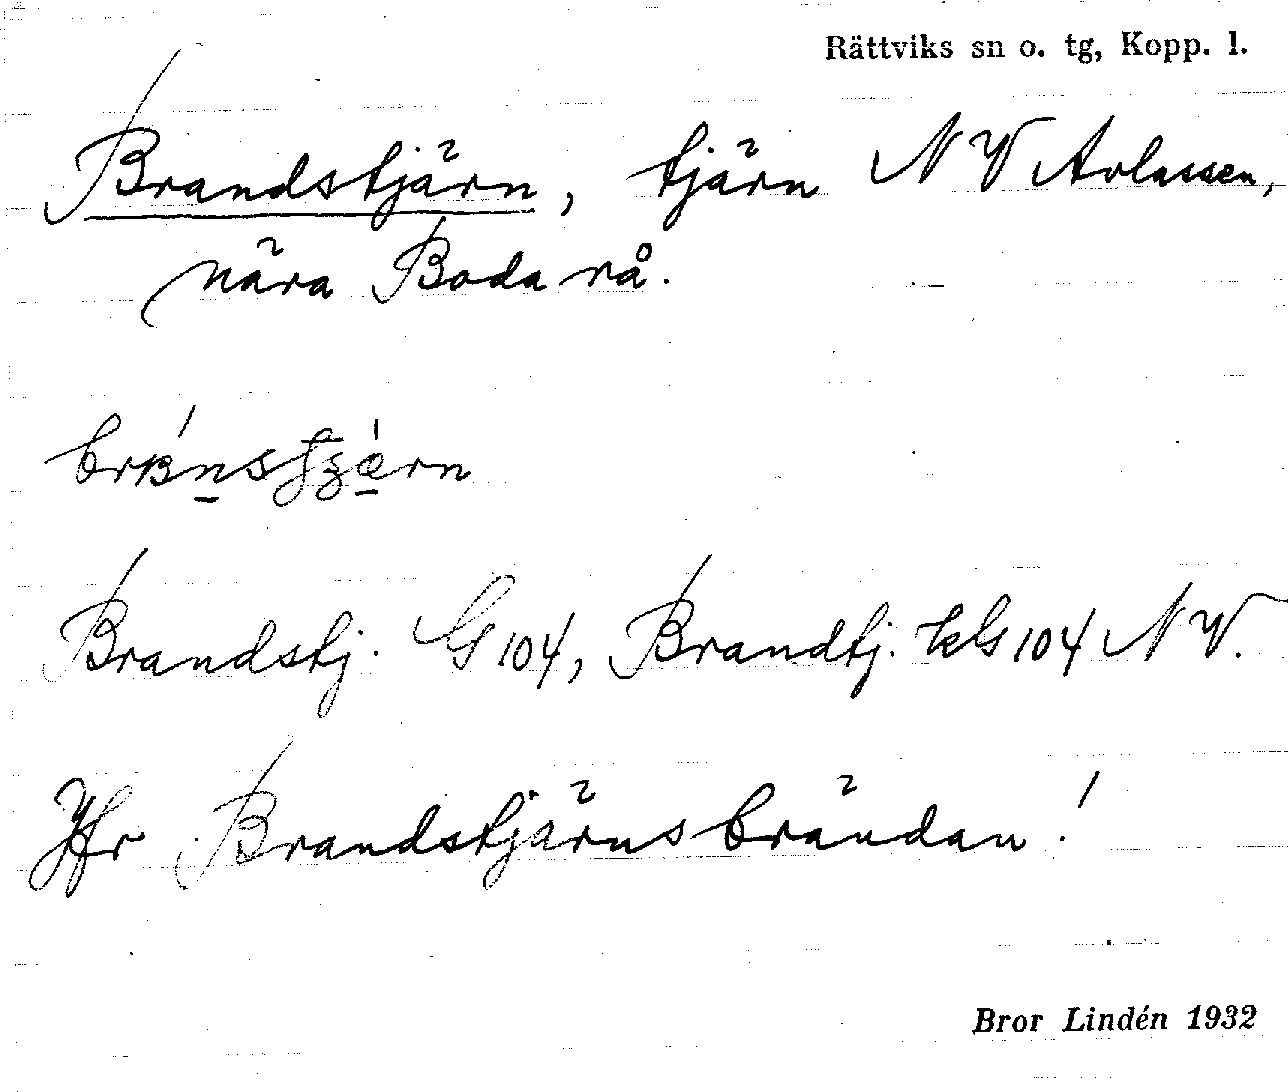 Rättviks sn o. tg, Kopp. l.
Brandstjärn, tjärn NV Avlassen,
nära Boda rå.
Brandstj. G 104, Brandtj. kG 104 NV.
Jfr Brandstjärnsbrändan!
Bror Lindén 1932